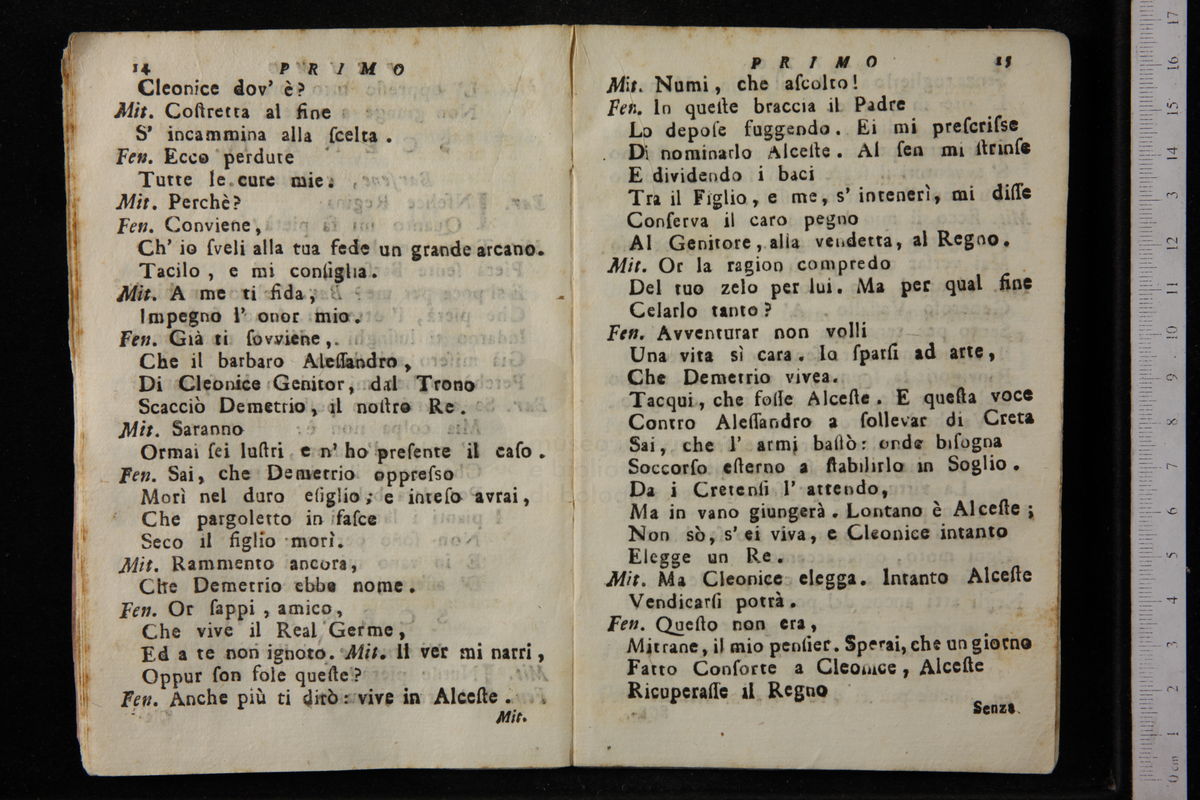 14 PRIMO
Cleonice dov' è?
Mit. Coſtretta al fine
S' incammina alla ſcelta.
Fen. Ecco perdute
Tutte le cure mie.
Mit. Perchè?
Fen. Conviene,
Ch' io ſveli alla tua fede un grande arcano.
Tacilo, e mi conſiglia.
Mit. A me ti fida;
Impegno l' onor mio.
Fen. Già ti ſovviene,
Che il barbaro Aleſſandro,
Di Cleonice Genitor, dal Trono
Scacciò Demetrio, il noſtro Re.
Mit. Saranno
Ormai ſei luſtri, e n' ho preſente il caſo.
Fen. Sai, che Demetrio oppreſso
Morì nel duro eſiglio; e inteſo avrai,
Che pargoletto in faſce
Seco il figlio morì.
Mit. Rammento ancora,
Che Demetrio ebbe nome.
Fen. Or ſappi, amico,
Che vive il Real Germe,
Ed a te non ignoto. Mit. Il ver mi narri,
Oppur ſon fole queſte?
Fen. Anche più ti dirò: vive in Alceſte.
Mit.
PRIMO 15
Mit. Numi, che aſcolto!
Fen. In queſte braccia il Padre
Lo depoſe fuggendo. Ei mi preſcriſse
Di nominarlo Alceſte. Al ſen mi ſtrinſe
E dividendo i baci
Tra il Figlio, e me, s' intenerì, mi diſſe
Conſerva il caro pegno
Al Genitore, alla vendetta, al Regno.
Mit. Or la ragion compredo
Del tuo zelo per lui. Ma per qual fine
Celarlo tanto?
Fen. Avventurar non volli
Una vita sì cara. Io ſparſi ad arte,
Che Demetrio vivea.
Tacqui, che foſſe Alceſte. E queſta voce
Contro Aleſſandro a ſollevar di Creta
Sai, che l' armi baſtò: onde biſogna
Soccorſo eſterno a ſtabilirlo in Soglio.
Da i Cretenſi l' attendo,
Ma in vano giungerà. Lontano è Alceſte;
Non sò, s' ei viva, e Cleonice intanto
Elegge un Re.
Mit. Ma Cleonice elegga. Intanto Alceſte
Vendicarſi potrà.
Fen. Queſto non era,
Mitrane, il mio penſier. Sperai, che un giorno
Fatto Conſorte a Cleonice, Alceſte
Ricuperaſſe il Regno
Senza